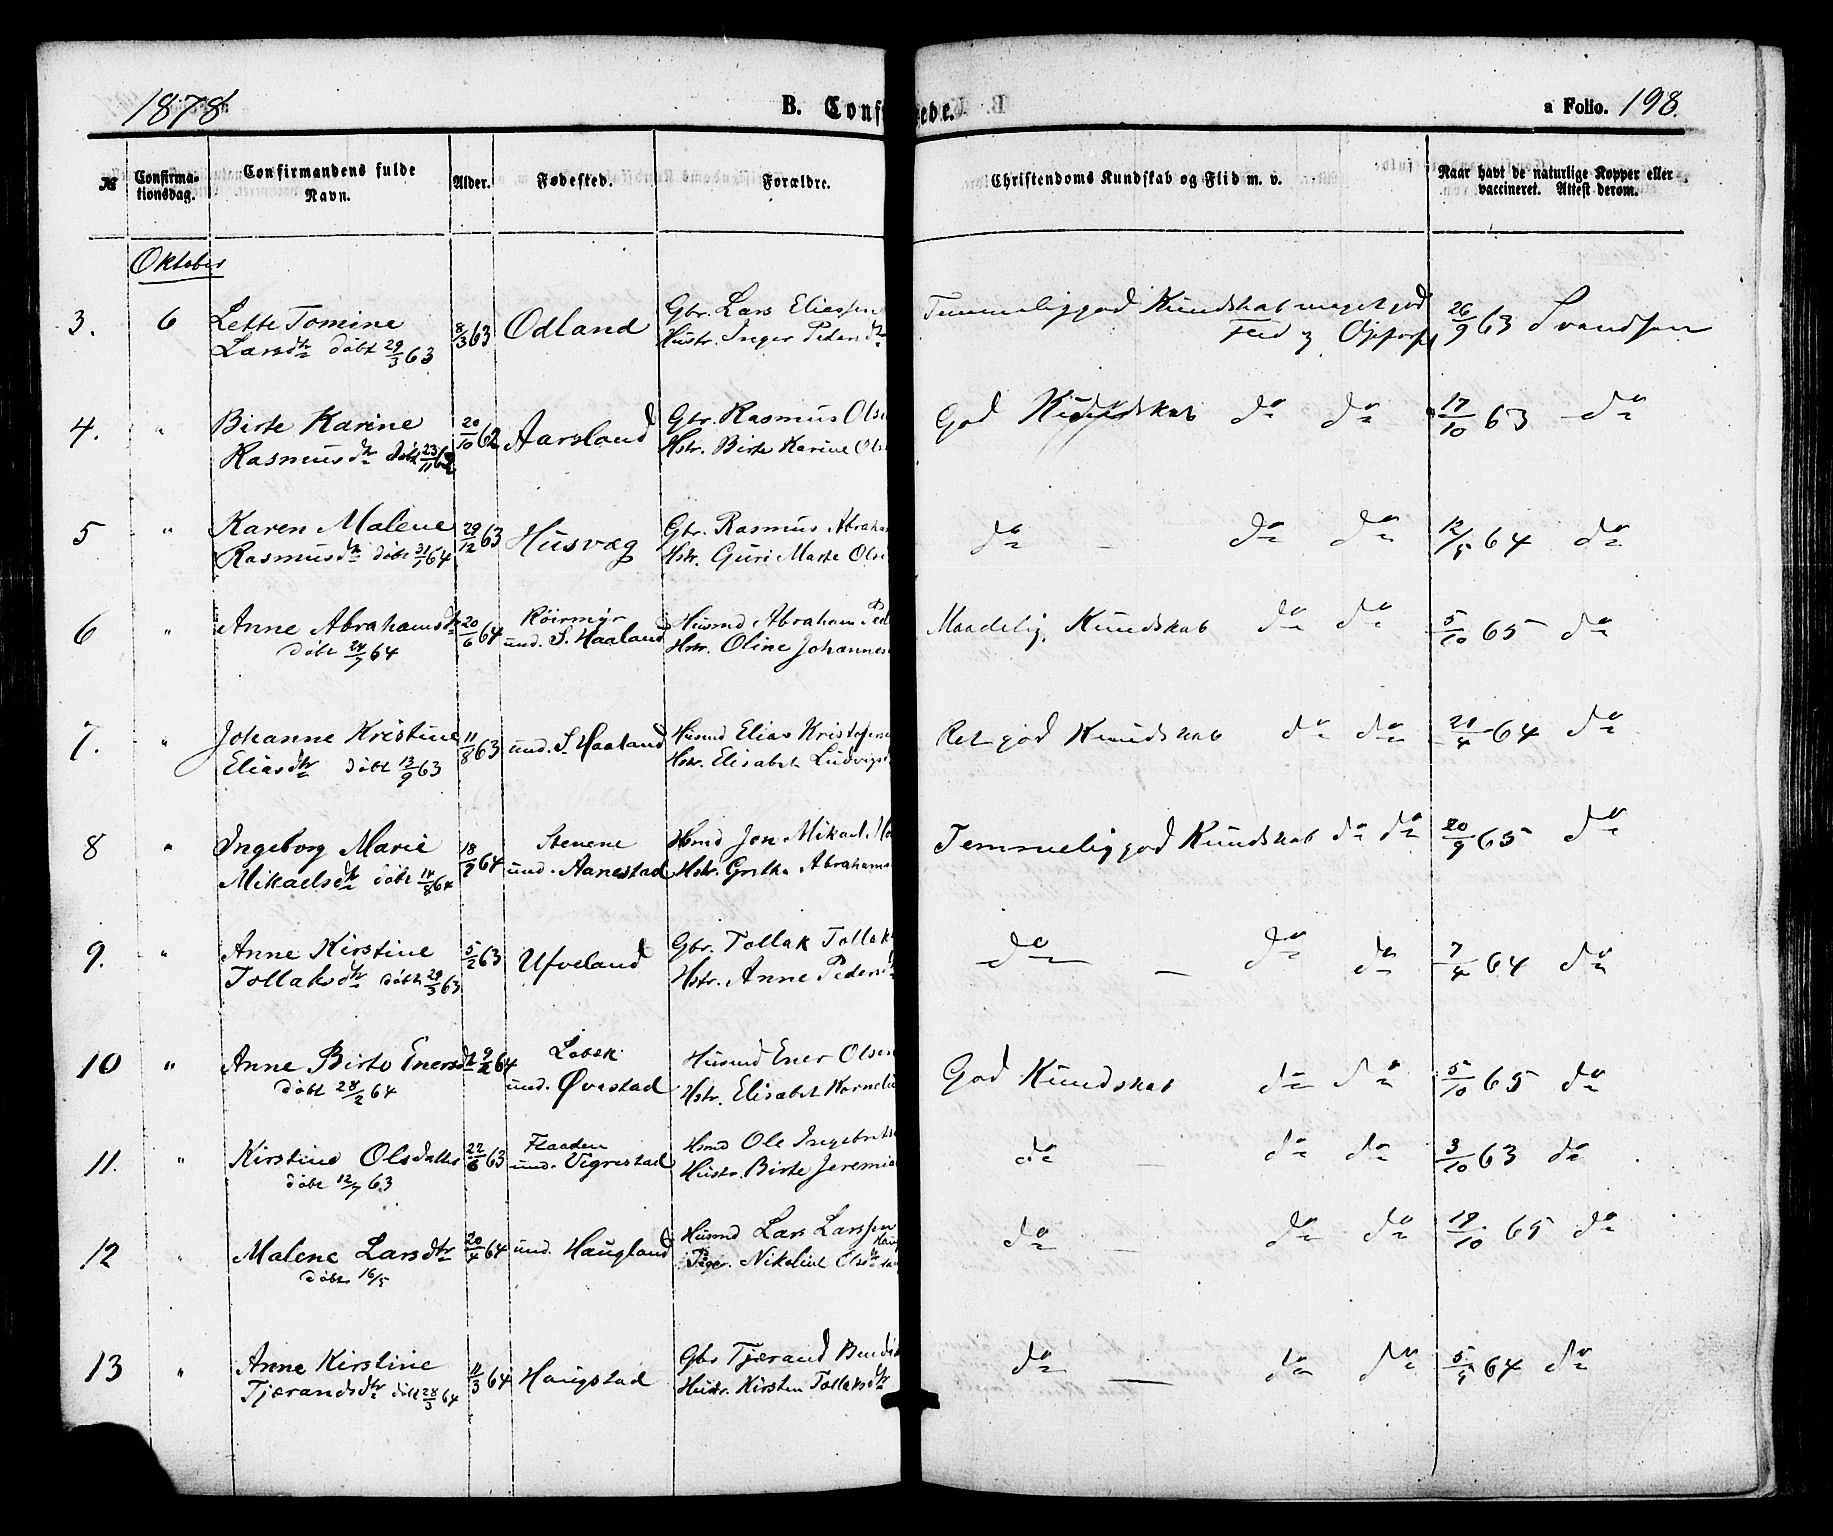 1878
B. Conf
ede.
a Folio. 198.
№
Confirma-
tionsdag.
Confirmandens fulde
Navn.
Alder.
Fødested.
Forældre.
Christendoms Kundskab og Flid m. v.
Naar havt de naturlige Kopper eller
vaccineret. Attest derom.
Oktober
3. 6 Lette Tomine 8/3 63 Odland Gbr. Lars Eliessen Temmelig god Kundskab meget god 26/9 63 Svendsen
Larsdtr døbt 29/3 63 Hustr. Inger Pedersdtr Flid og Opførs
4. " Birte Karine 20/10 62 Aarsland Gbr. Rasmus Olse God Kundskab do do 17/10 63 do
Rasmusdtr døbt 23/11 62 Hstr. Birte Karine Ols
5 " Karen Malene 29/12 63 Husvæg Gbr. Rasmus Abraha do - do do 12/5 64 do
Rasmusdtr døbt 31/1 64 Hstr. Guri Marte Ols
6 " Anne Abrahamsdtr 20/6 64 Røirmyr Husmd Abraham Ped Maadelig Kundskab do do 5/10 65 do
døbt 24/7 64 und. S. Haaland Hstr. Oline Johannes
7. " Johanne Kristine 11/8 63 und. S. Haaland Husmd Elias Kristofers Ret god Kundskab do do 21/4 64 do
Eliasdtr døbt 13/9 63 Hstr. Elisabet Ludvigsd
8 " Ingeborg Marie 18/7 64 Stenene Hsmd Jon Mikael Temmelig god Kundskab do do 20/9 65 do
Mikaelsdtr døbt 14/8 64 und. Aanestad Hstr. Gretha Abrahams
9. " Anne Kirstine 5/2 63 Ufveland Gbr. Tollak Tollaks do - do do 7/4 64 do
Tollaksdtr døbt 29/3 63 Hstr. Anne Pedersd
10 " Anne Birte Enersdtr 9/2 64 Løbsk Husmd Ener Olsen God Kundskab do do 5/10 65 do
døbt 28/2 64 und. Øvestad Hstr. Elisabet Korneliu
11. " Kirstine Olsdatter 22/6 63 Flaaden Hsmd Ole Ingebrets do - do do 3/10 63 do
døbt 12/7 63 und. Vigrestad Hustr. Birte Jeremia
12 " Malene Larsdtr 20/4 64 und. Haugland Husmd Lars Larssen do - do do 19/10 65 do
døbt 16/5 Pige. Nikoline Olsdtr
13 " Anne Kirstine 11/3 64 Haugstad Gbr Tjærand Bendik do - do do 5/9 64 do
Tjærandsdtr døbt 28/3 64 Hustr. Kirsten Tollaksdtr